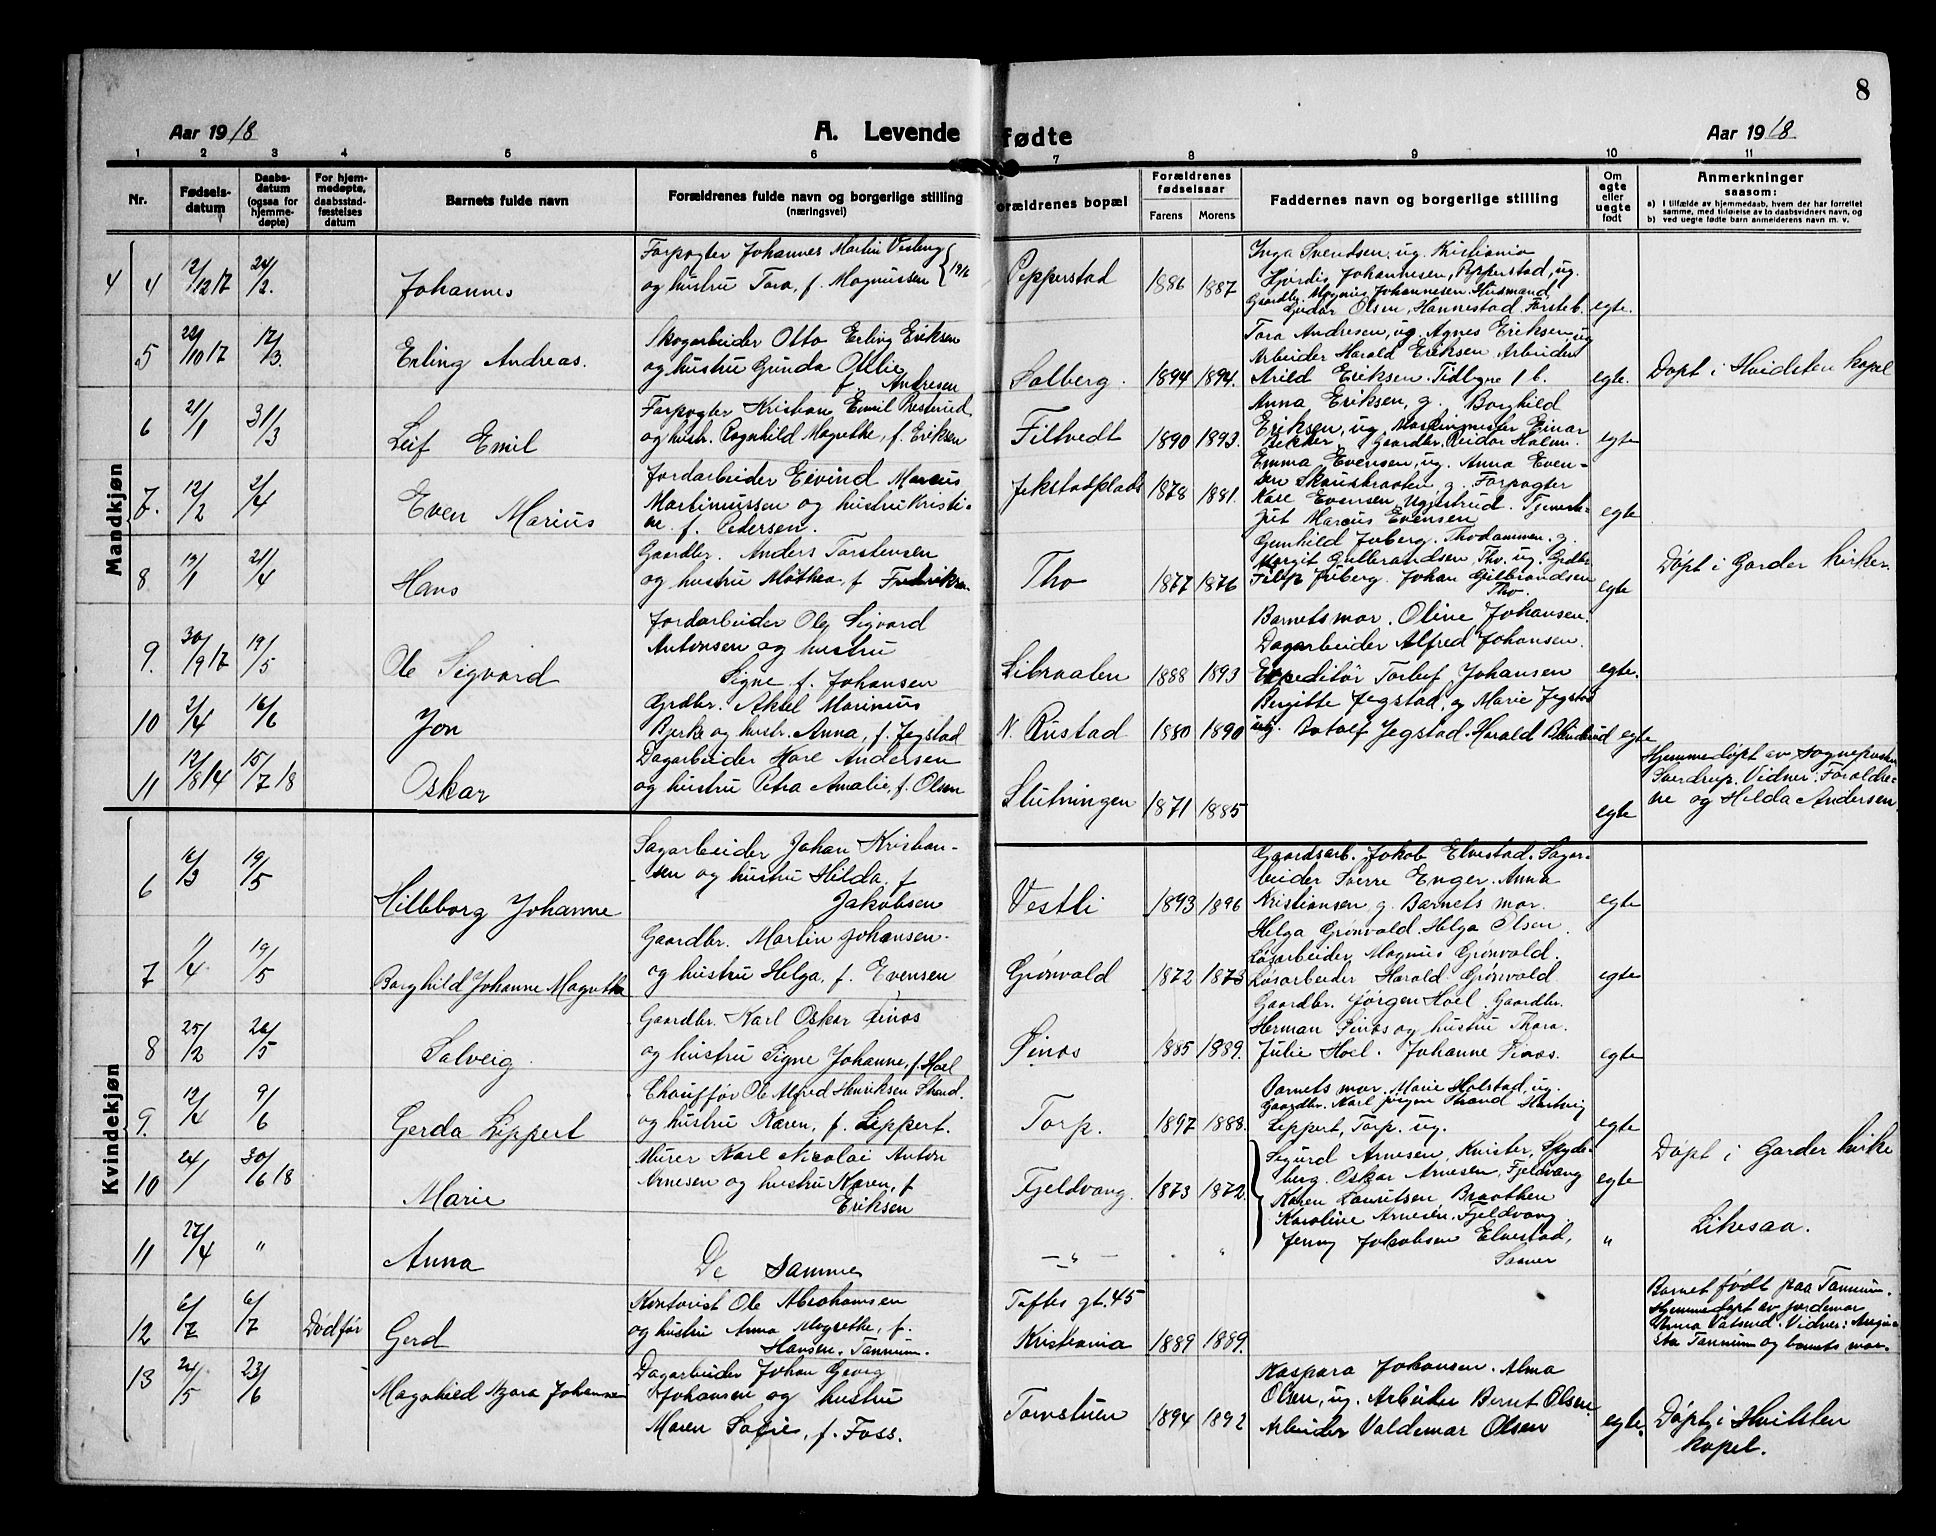 8
Aar 1918 A. Levende fødte Aar 1918
1 2 3 4 5 6 7 8 9 10 11
Nr.
Fødsels-
datum
Daabs-
datum
(ogsaa for
hjemme-
døpte)
For hjem-
medøpte,
daabsstad-
fæstelses
datum
Barnets fulde navn
Forældrenes fulde navn og borgerlige stilling
(næringsvei)
orældrenes bopæl
Forældrenes
fødselsaar
Farens Morens
Faddernes navn og borgerlige stilling
Om
egte
eller
uegte
født
Anmerkninger
saasom:
a) I tilfælde av hjemmedaab, hvem der har forrettet
samme, med tilføielse av to daabsvidners navn, og
b) ved uegte fødte barn anmelderens navn m. v.
Mandkjøn
4 4 12/12 17 24/2.
Johannes
Forpagter Johannes Martin Vesteng
og hustru Tora, f. Magnussen { 1916
Pepperstad
1886 1887
Inga Svendsen, ug. Kristiania
Hjørdis Johannesen, Pepperstad, ug.
Gaardbr. Magnus Johannesen. Husmand
Gudar Olsen, Hannestad. Første b.
egte.
5 22/10 17 17/3.
Erling Andreas.
Skogarbeider Otto Erling Eriksen
og hustru Gunda Otilie
f. Andresen
Solberg.
1894 1894.
Tora Andresen, ug. Agnes Eriksen, ug
Arbeider Harald Eriksen. Arbeider
Arild Eriksen. Tidligne 1 b.
egte.
Døpt i Hvidsten kapel
6 21/1 31/3
Leif Emil
Forpagter Kristian Emil Presterud
og hustr. Ragnhild Magrethe, f. Eriksen
Filtvedt
1890 1893.
Anna Eriksen, g. Borghild
Eriksen, ug. Maskinmester Einar
Bekker. Gaardbr. Reidar Holm.
egte
7. 12/2 2/4
Even Marius
Jordarbeider Eivind Marcus
Martinussen og hustru Kristi-
ne, f. Pedersen.
Jekstadplads
1878 1881.
Emma Evensen, ug. Anna Even-
sen Skaustraaten g. Forpagter
Kare Evensen, Uggestrud. Tjeneste-
jut Marcus Evensen
egte
8 19/1 21/4
Hans
Gaardbr. Anders Torstensen
og hustru Mathea, f. Fredriksen
Tho
1877 1876
Gunhild Juberg. Thodammen. g.
Margit Gulbrandsen Tho. ug. Grdbr.
Filip Juberg. Johan Gulbrandsen
Tho.
egte
Døpt i Garder kirker.
9. 30/9 17 19/5
Ole Sigvard
Jordarbeider Ole Sigvard
Antonsen og hustru
Signe f. Johansen
Libraaten
1888 1893
Barnets mor. Oline Johansen.
Dagarbeider Alfred Johansen.
Expeditør Torleif Johansen
egte.
10 2/4 16/6
Jon
Grdbr. Aksel Marinius
Bjerke og hustr. Anna, f. Jegstad
N. Rustad
1880 1890
Birgitte Jegstad, g. Marie Jegstad
ug. Botolf Jegstad. Harald Blindrud
egte
11 12/8 14 15/7 18
Oskar
Dagarbeider Karl Andersen
og hustru Petra Amalie, f. Olsen
Slutningen
1871 1885
egte
Hjemmedøpt av sogneprest
Sverdrup. Vidner: Foraldre-
ne og Hilda Andersen
Kvindekjøn
6 16/3 19/5
Hilleborg Johanne
Sagarbeider Johan Kristian-
sen og hustru Hilda, f
Jakobsen
Vestli
1893 1896
Gaardsarb. Jokob Elvestad. Sagar-
beider Sverre Enger. Anna
Kristiansen g. Barnets mor.
egte
7 1/4 19/5
Borghild Johanne Magrethe
Gaardbr. Martin Johansen
og hustru Helga, f. Evensen
Grønvold
1872 1873
Helga Grønvold. Helga Olsen
Løsarbeider Magnus Grønvold.
Løsarbeider Harald Grønvold
egte
8 25/2 20/5
Solveig
Gaardbr. Karl Oskar Finos
og hustru Signe Johanne, f. Hoel
1885 1889.
Gaardbr. Jørgen Hoel. Gaardbr.
Herman og hustru Thora.
Julie Hoel. Johanne
egte
9. 12/4 9/6
Gerda Lippert
Chauffør Ole Alfred Henriksen Strand.
og hustru Karen, f. Lippert.
Torp.
1897 1888.
Barnets mor. Marie Holstad, ug.
Gaardbr. Karl Jørgen Strand Hartvig
Leppert, Torp. ug.
egte
10 27/ 30/6 18
Marie
Murer Karl Nicolai Anton
Arnesen og hustru Karen, f
Eriksen
Fjeldvang.
1873 1872.
Sigurd Arnesen, Knister, Spyde-
berg. Oskar Arnesen, Fjeldvang
Karen Lauritsen Braathen
Karoline Arnesen. Fjeldvang
Jenny Jakobsen Elvestad,
Saaner
egte
Døpt i Garder kirke
11 27/4 "
Anna
De samme
— " —
" "
"
Likesaa.
12 6/7 6/7 Død før
Gerd
Kontorist Ole Abrahamsen
og hustru Anna Magrethe, f.
Hansen. Tannum.
Toftes gt. 45
Kristiania
1889 1889.
Barnet født paa Tannum.
Hjemmedøpt av jordemor
Anna Vatsend. Vidner: Augu-
sta Tannum og barnets mor.
13 24/5 23/6
Magnhild Njara Johanne
Dagarbeider Johan Georg
Johansen og hustru
Maren Sofie, f. Foss.
Tomstuen
1894 1892
Kaspara Johansen. Alma
Olsen, ug. Arbeider Bernt Olsen.
Arbeider Valdemar Olsen
egte.
Døpt i Hvitsten
kapel.